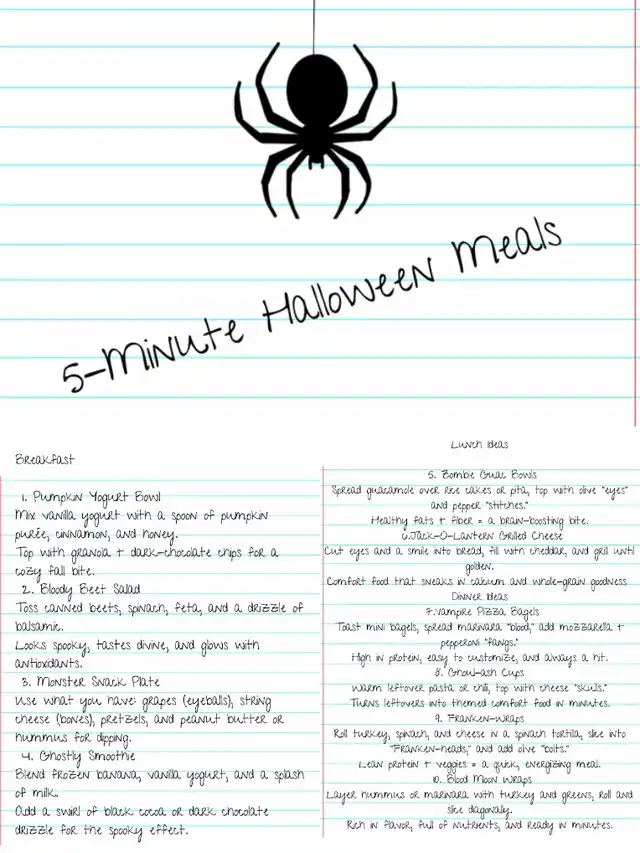 5-Minute Halloween Meals
Breakfast
1. Pumpkin Yogurt Bowl
Mix vanilla yogurt with a spoon of pumpkin
purée, cinnamon, and honey.
Top with granola + dark-chocolate chips for a
cozy fall bite.
2. Bloody Beet Salad
Toss canned beets, spinach, feta, and a drizzle of
balsamic.
Looks spooky, tastes divine, and glows with
antioxidants.
3. Monster Snack Plate
Use what you have: grapes (eyeballs), string
cheese (bones), pretzels, and peanut butter or
hummus for dipping.
4. Ghostly Smoothie
Blend frozen banana, vanilla yogurt, and a splash
of milk.
Add a swirl of black cocoa or dark chocolate
drizzle for the spooky effect.
Lunch Ideas
5. Zombie Guac Bowls
Spread guacamole over rice cakes or pita, top with olive "eyes"
and pepper "stitches."
Healthy fats + fiber = a brain-boosting bite.
6.Jack-O-Lantern Grilled Cheese
Cut eyes and a smile into bread, fill with cheddar, and grill until
golden.
Comfort food that sneaks in calcium and whole-grain goodness
Dinner Ideas
7.Vampire Pizza Bagels
Toast mini bagels, spread marinara "blood," add mozzarella +
pepperoni "fangs."
High in protein, easy to customize, and always a hit.
8. Ghoul-ash Cups
Warm leftover pasta or chili, top with cheese "skulls."
Turns leftovers into themed comfort food in minutes.
9. Franken-Wraps
Roll turkey, spinach, and cheese in a spinach tortilla, slice into
"Franken-heads," and add olive "bolts."
Lean protein + veggies = a quick, energizing meal.
10. Blood Moon Wraps
Layer hummus or marinara with turkey and greens, roll and
slice diagonally.
Rich in flavor, full of nutrients, and ready in minutes.